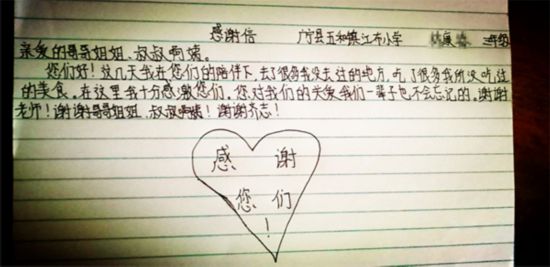 感谢信 广宁县五和镇江布小学 三年级
亲爱的哥哥姐姐、叔叔啊姨。
您们好！这几天我在您们的陪伴下，去了很多我没去过的地方，吃了很多我所没吃过
的美食。在这里我十分感激您们。您对我们的关爱我们一辈子也不会忘记的。谢谢
老师！谢谢哥哥姐姐、叔叔啊姨！谢谢齐志！
感 谢
您 们
！